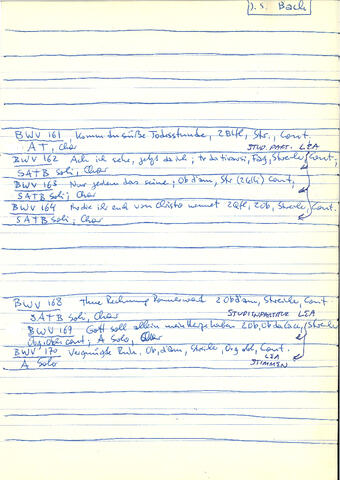 J. S. Bach
BWV 161 Komm du süße Todesstunde, 2 Blfl, Str., Cont.
A T, Chor STUD. PART. LEA
BWV 162 Ach ich sehe, jetzt da ich; Fag, Streicher, Cont,
SATB Soli; Chor
BWV 163 Nur jedem das seine; Ob d'am, Str (2 Celli) Cont,
SATB Soli; Chor
BWV 164 Ihr die ihr euch von Christo nennet 2 Qfl, 2 Ob, Streicher, Cont.
SATB Soli, Chor
BWV 168 Tue Rechnung Donnerwort 2 Ob d'am, Streicher, Cont
SATB Soli, Chor STUDIENPARTITUR LEA
BWV 169 Gott soll allein mein Herze haben 2 Ob, Ob da cacc, Streicher
Org obl Cont; A Solo, Chor
BWV 170 Vergnügte Ruh, Ob d'am, Streicher, Org obl, Cont.
A Solo LEA
STIMMEN